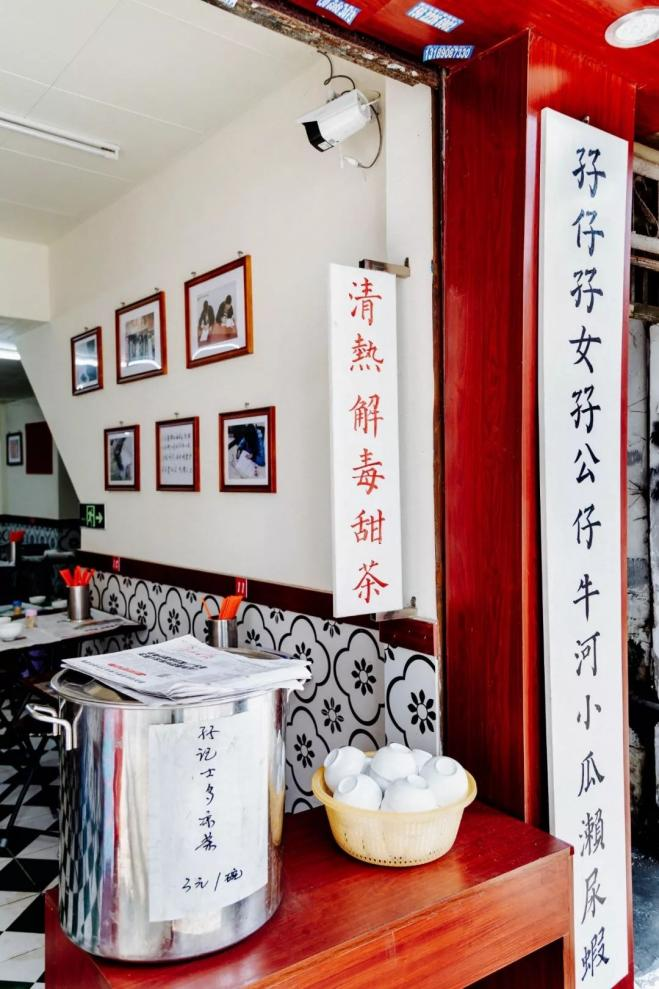 清熱解毒甜茶
孖仔孖女孖公仔牛河小瓜瀨尿蝦
孖记士多凉茶
3元/碗